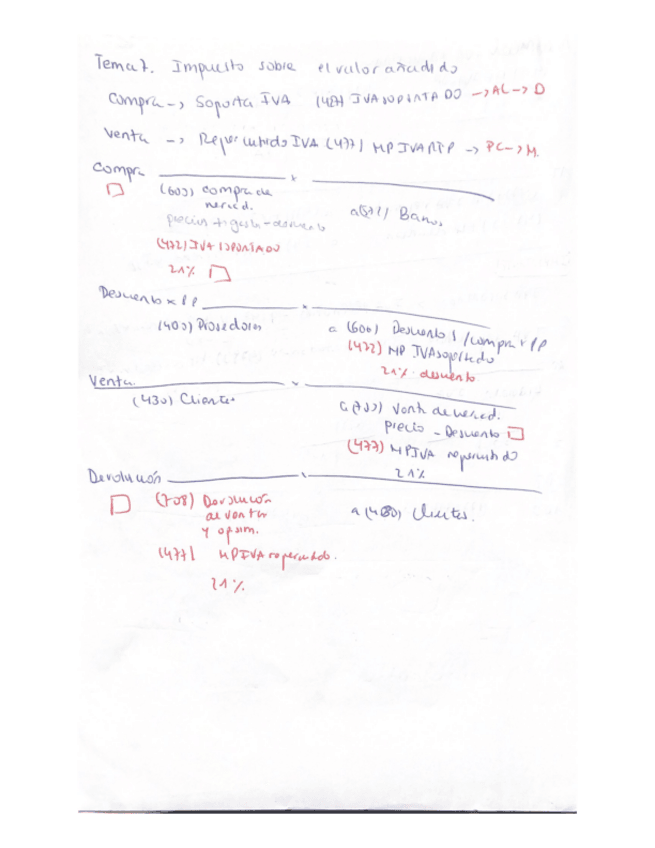 Tema 7. Impuesto sobre el valor añadido
Compra -> Soporta IVA (472) IVA SOPORTADO -> AC -> D
Venta -> Repercutido IVA (477) HP IVA REP -> PC -> M.
Compra
(600) Compra de
mercad.
precio + gastos - descuento
a (572) Banco
(472) IVA SOPORTADO
21%
Descuento x PP
(400) Proveedores
a (606) Descuento s/compra x PP
(472) HP IVA soportado
21% descuento
Venta
(430) Clientes
a (700) Venta de mercad.
precio - Descuento
(477) HP IVA repercutido
21%
Devolución
(708) Devolución
de ventas
y opsim.
a (430) Clientes.
(477) HP IVA repercutido.
21%